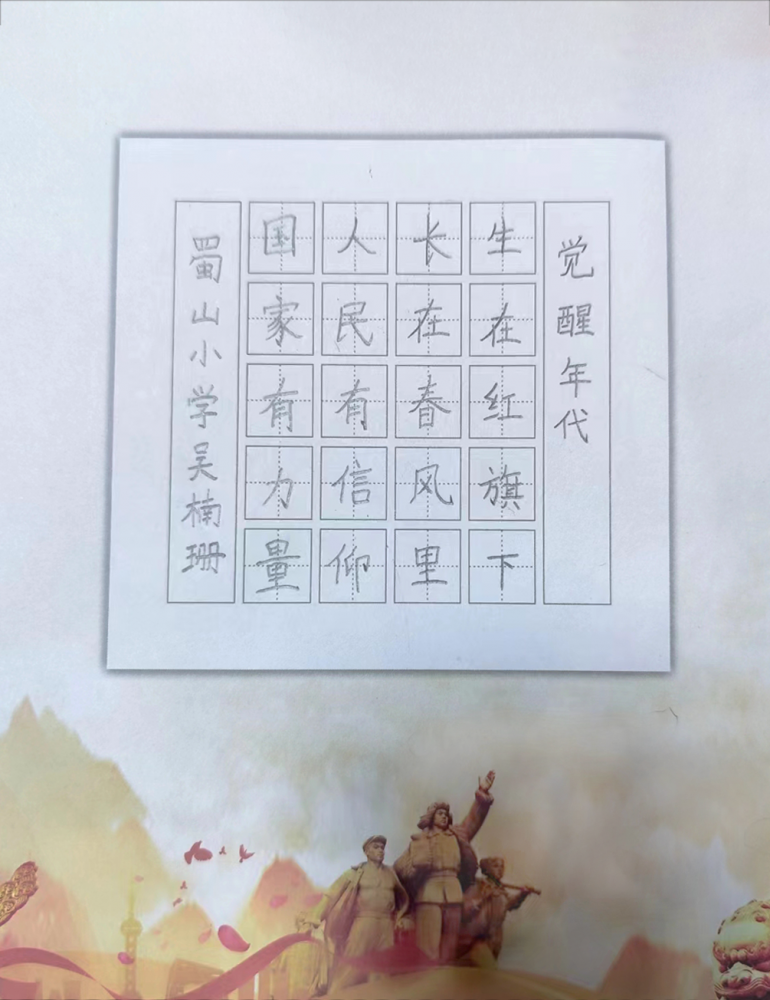 觉醒年代
生在红旗下
长在春风里
人民有信仰
国家有力量
蜀山小学吴楠珊